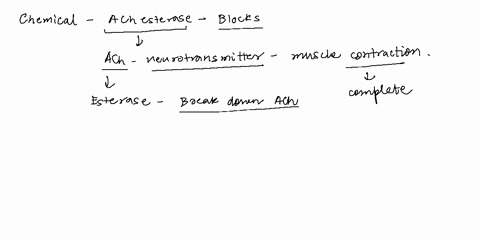 Chemical - ACh esterase - Blocks
↓
ACh - neurotransmitter - muscle contraction.
↓ ↓
Esterase - Break down ACh complete